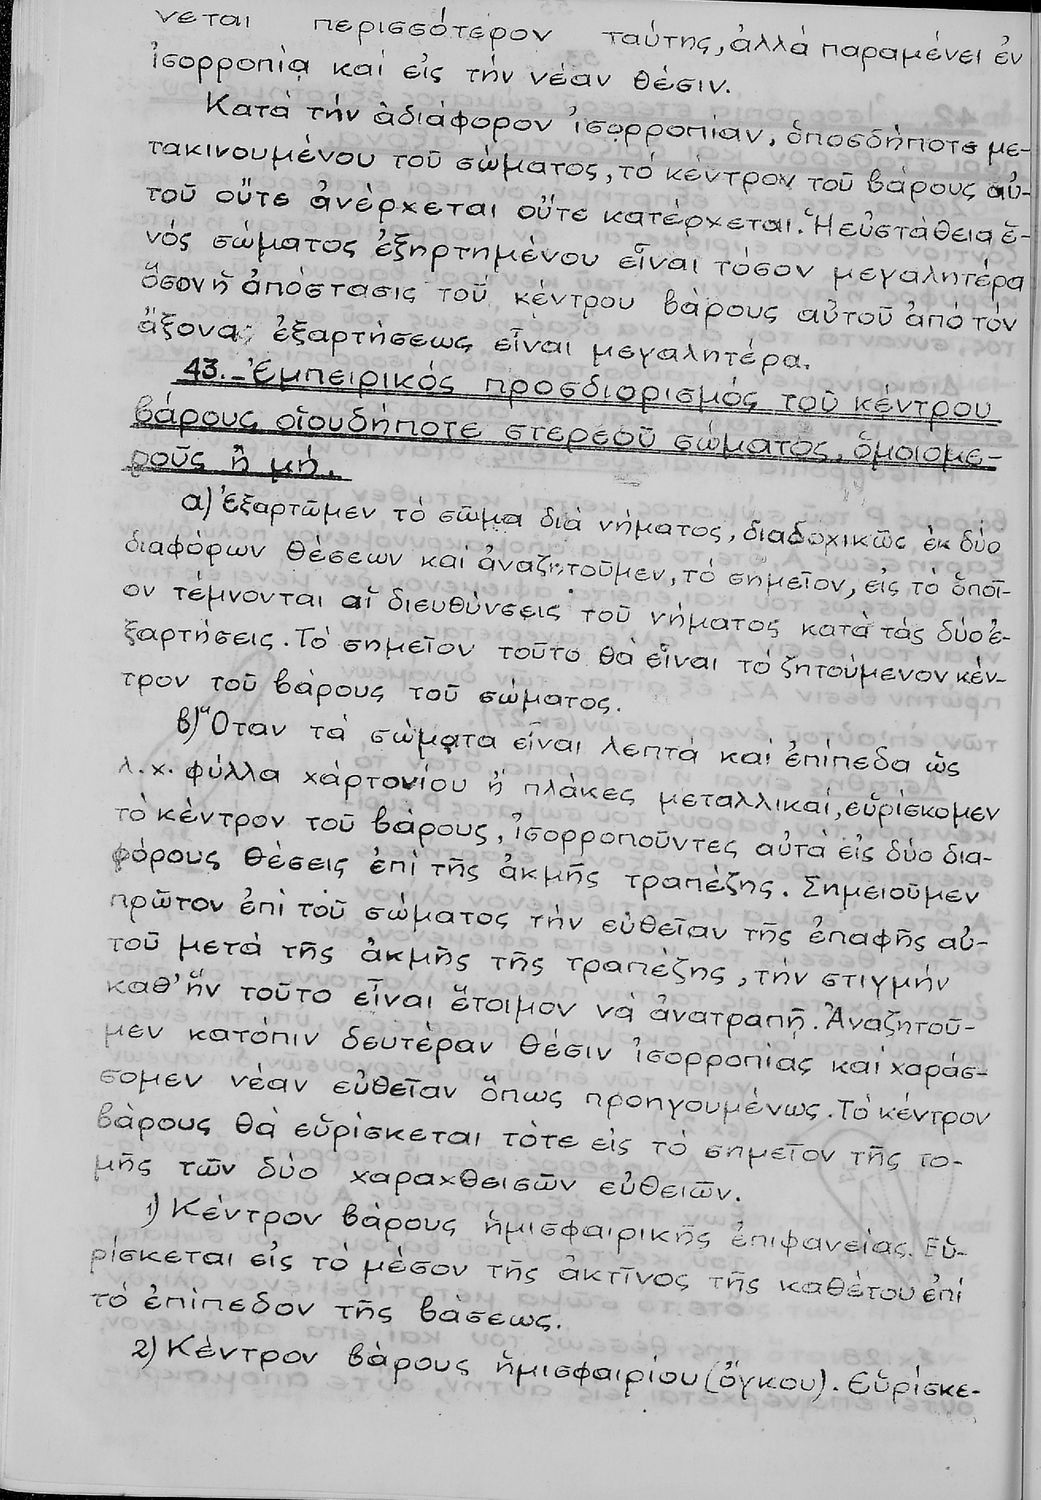 νεται περισσότερον ταύτης, ἀλλά παραμένει ἐν
ἰσορροπίᾳ καί εἰς τήν νέαν θέσιν.
Κατά τήν ἀδιάφορον ἰσορροπίαν, ὁποσδήποτε με-
τακινουμένου τοῦ σώματος, τό κέντρον τοῦ βάρους αὐ-
τοῦ οὔτε ἀνέρχεται οὔτε κατέρχεται. Ἡ εὐστάθεια ἑ-
νός σώματος ἐξηρτημένου εἶναι τόσον μεγαλητέρα
ὅσον ἡ ἀπόστασις τοῦ κέντρου βάρους αὐτοῦ ἀπό τόν
ἄξονα ἐξαρτήσεως εἶναι μεγαλητέρα.
43.- Ἐμπειρικός προσδιορισμός τοῦ κέντρου
βάρους οἱουδήποτε στερεοῦ σώματος, ὁμοιομε-
ροῦς ἤ μή.
α) Ἐξαρτῶμεν τό σῶμα διά νήματος, διαδοχικῶς ἐκ δύο
διαφόρων θέσεων καί ἀναζητοῦμεν, τό σημεῖον, εἰς τό ὁποῖ-
ον τέμνονται αἱ διευθύνσεις τοῦ νήματος κατά τάς δύο ἐ-
ξαρτήσεις. Τό σημεῖον τοῦτο θά εἶναι τό ζητούμενον κέν-
τρον τοῦ βάρους τοῦ σώματος.
β) Ὅταν τά σώματα εἶναι λεπτά καί ἐπίπεδα ὡς
λ.χ. φύλλα χάρτονίου ἤ πλάκες μεταλλικαί, εὑρίσκομεν
τό κέντρον τοῦ βάρους, ἰσορροποῦντες αὐτά εἰς δύο δια-
φόρους θέσεις ἐπί τῆς ἀκμῆς τραπέζης. Σημειοῦμεν
πρῶτον ἐπί τοῦ σώματος τήν εὐθεῖαν τῆς ἐπαφῆς αὐ-
τοῦ μετά τῆς ἀκμῆς τῆς τραπέζης, τήν στιγμήν
καθ' ἥν τοῦτο εἶναι ἕτοιμον νά ἀνατραπῇ. Ἀναζητοῦ-
μεν κατόπιν δευτέραν θέσιν ἰσορροπίας καί χαράσ-
σομεν νέαν εὐθεῖαν ὅπως προηγουμένως. Τό κέντρον
βάρους θά εὑρίσκεται τότε εἰς τό σημεῖον τῆς το-
μῆς τῶν δύο χαραχθεισῶν εὐθειῶν.
1) Κέντρον βάρους ἡμισφαιρικῆς ἐπιφανείας. Εὑ-
ρίσκεται εἰς τό μέσον τῆς ἀκτῖνος τῆς καθέτου ἐπί
τό ἐπίπεδον τῆς βάσεως.
2) Κέντρον βάρους ἡμισφαιρίου (ὄγκου). Εὑρίσκε-